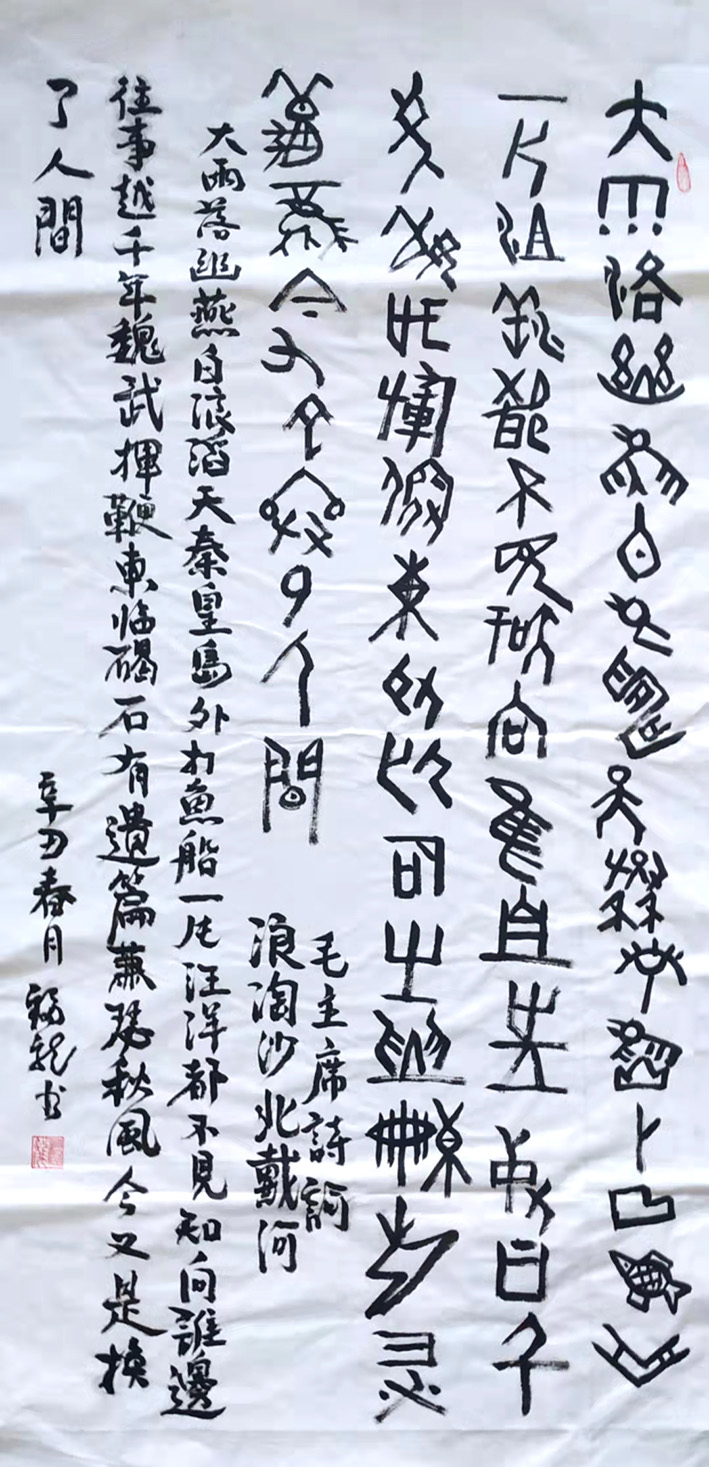 大雨落幽燕白浪滔天秦皇島外打魚船
一片汪洋都不見知向誰邊往事越千
年魏武揮鞭東臨碣石有遺篇蕭瑟
秋風今又是換了人間
毛主席詩詞
浪淘沙北戴河
大雨落幽燕白浪滔天秦皇島外打魚船一片汪洋都不見知向誰邊
往事越千年魏武揮鞭東临碣石有遺篇蕭瑟秋風今又是換
了人間
辛丑春月福龍书